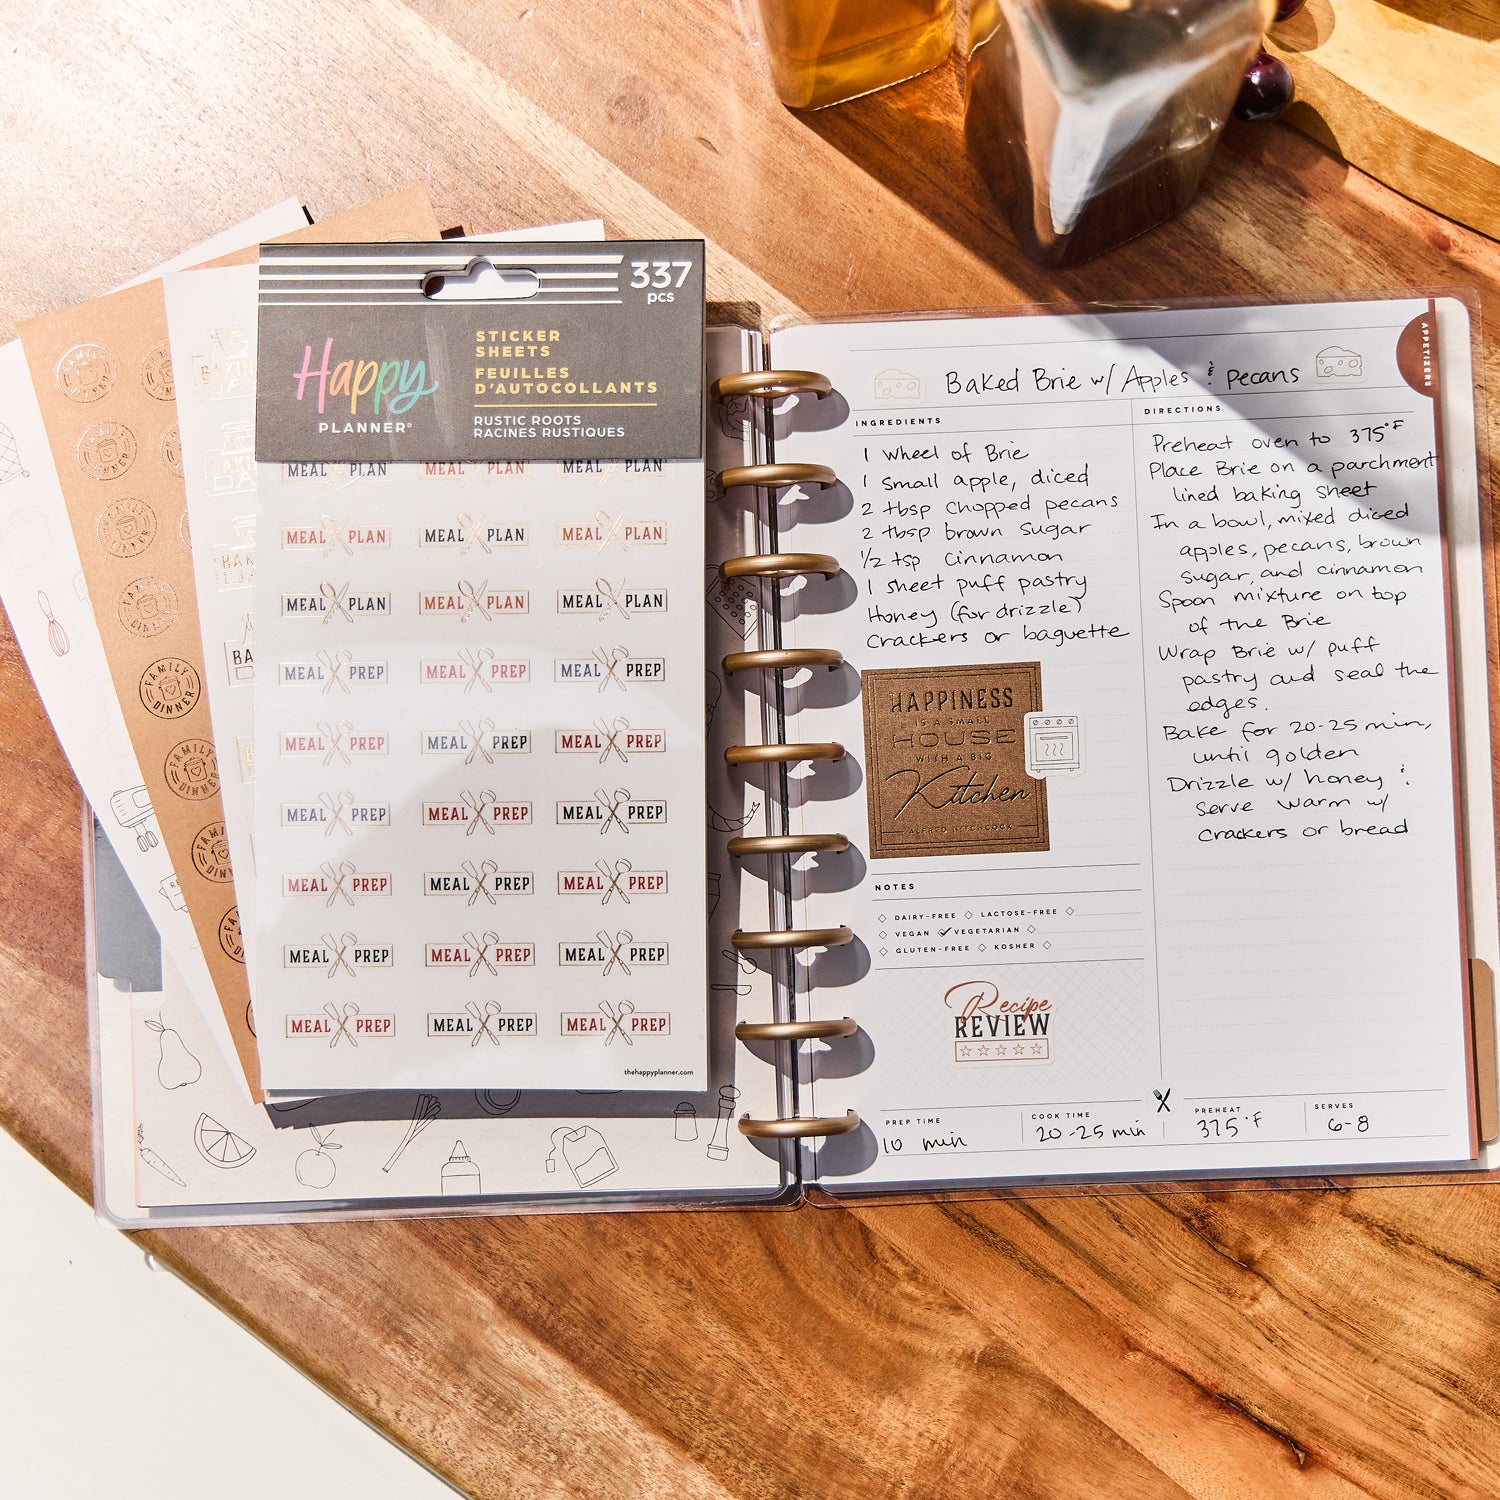 337
pcs
Happy
PLANNER®
STICKER
SHEETS
FEUILLES
D'AUTOCOLLANTS
RUSTIC ROOTS
RACINES RUSTIQUES
MEAL PLAN MEAL PLAN MEAL PLAN
MEAL PLAN MEAL PLAN MEAL PLAN
MEAL PLAN MEAL PLAN MEAL PLAN
MEAL PREP MEAL PREP MEAL PREP
MEAL PREP MEAL PREP MEAL PREP
MEAL PREP MEAL PREP MEAL PREP
MEAL PREP MEAL PREP MEAL PREP
MEAL PREP MEAL PREP MEAL PREP
MEAL PREP MEAL PREP MEAL PREP
thehappyplanner.com
FAMILY DINNER
FAMILY DINNER
FAMILY DINNER
FAMILY DINNER
FAMILY DINNER
FAMILY DINNER
FAMILY DINNER
APPETIZERS
Baked Brie w/ Apples & pecans
INGREDIENTS
1 wheel of Brie
1 small apple, diced
2 tbsp chopped pecans
2 tbsp brown sugar
1/2 tsp cinnamon
1 sheet puff pastry
Honey (for drizzle)
Crackers or baguette
HAPPINESS
IS A SMALL
HOUSE
WITH A BIG
Kitchen
ALFRED HITCHCOCK
NOTES
DAIRY-FREE LACTOSE-FREE
VEGAN VEGETARIAN
GLUTEN-FREE KOSHER
Recipe
REVIEW
DIRECTIONS
Preheat oven to 375°F
Place Brie on a parchment
lined baking sheet
In a bowl, mixed diced
apples, pecans, brown
sugar, and cinnamon
Spoon mixture on top
of the Brie
Wrap Brie w/ puff
pastry and seal the
edges.
Bake for 20-25 min,
until golden
Drizzle w/ honey &
serve warm w/
crackers or bread
PREP TIME
10 min
COOK TIME
20-25 min
PREHEAT
375°F
SERVES
6-8